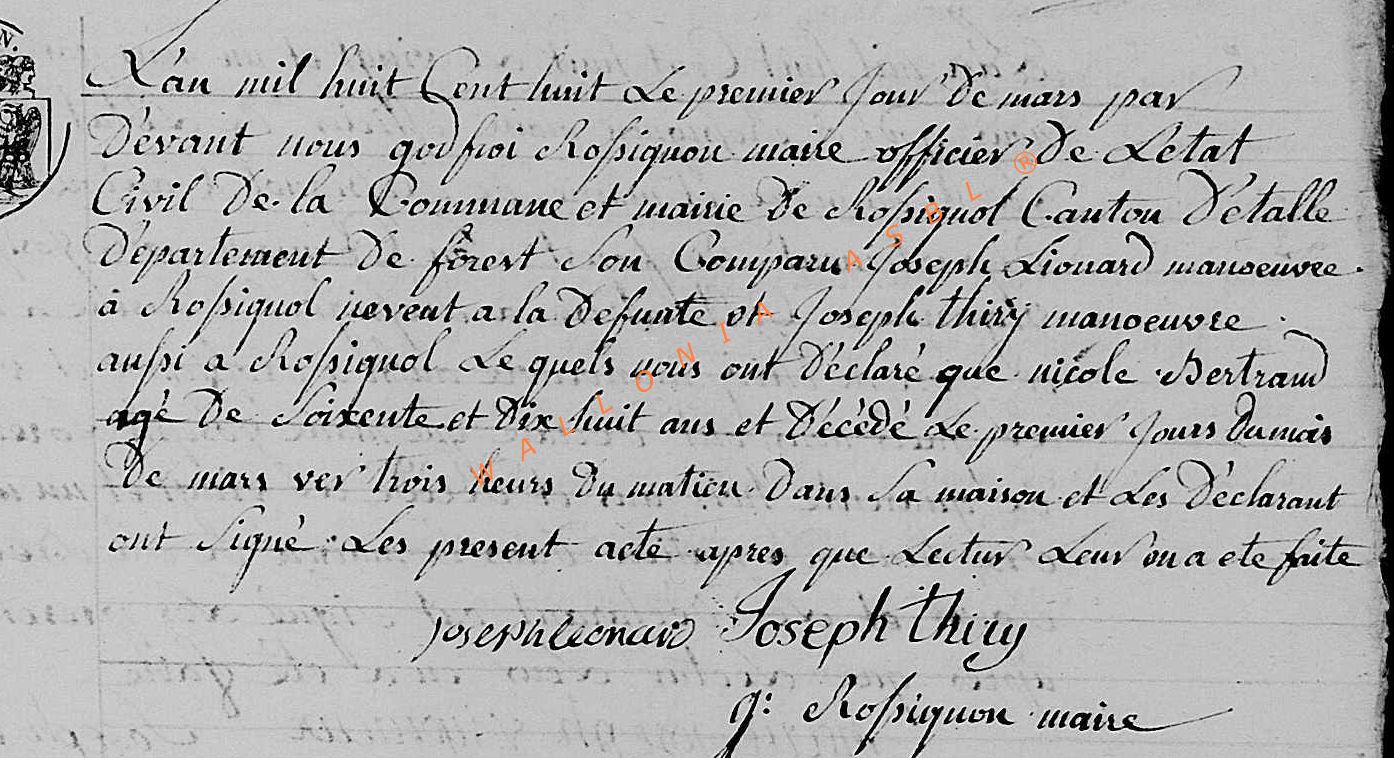 N.
L'an mil huit Cent huit Le premier Jour De mars par
Dévant nous godfroi Rossignon maire officier De Letat
Civil De la Commune et mairie De Rossignol Canton D'étalle
Département De forest Son Comparu Joseph Lionard manoeuvre
à Rossignol neveut a la Defunte et Joseph thiry manoeuvre
aussi a Rossignol Le quels nous ont Déclaré que nicole Bertrand
agé De Soixente et Dix huit ans et Décédé Le premier Jours Du mois
De mars ver trois heurs Du matieu Dans Sa maison et Les Déclarant
ont Signé Les present acte apres que Lectur Leur en a ete faite
Joseph leonard Joseph thiry
g: Rossignon maire
WALLONIA ASBL ®